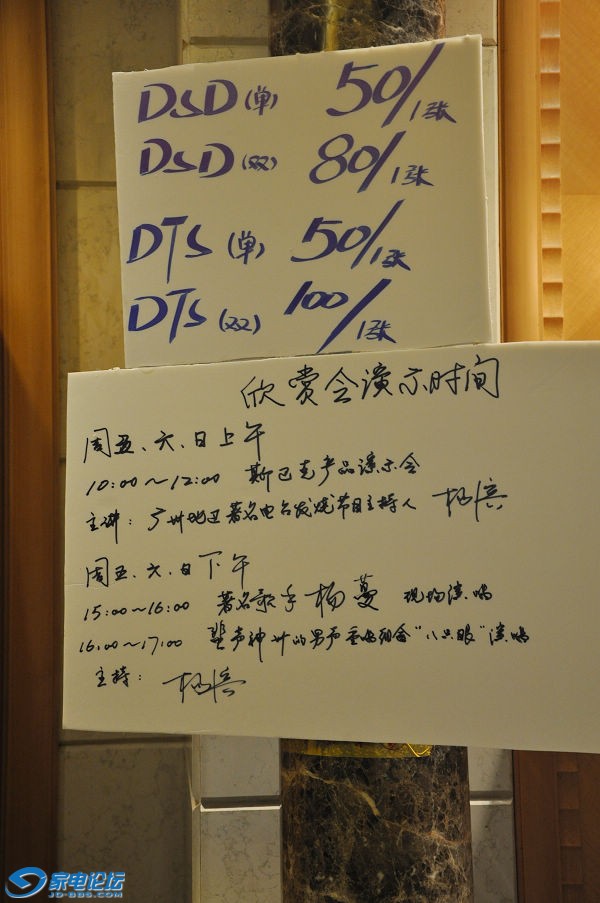 DSD (单) 50/1张
DSD (双) 80/1张
DTS (单) 50/1张
DTS (双) 100/1张
欣赏会演示时间
周五、六、日上午
10:00～12:00 斯巴克产品演示会
主讲：广州地区著名电台发烧节目主持人 杨
周五、六、日下午
15:00～16:00 著名歌手 杨蔓 现场演唱
16:00～17:00 蜚声神州的男声重唱组合“八只眼”演唱
主持： 杨
家电论坛
JD-BBS.COM